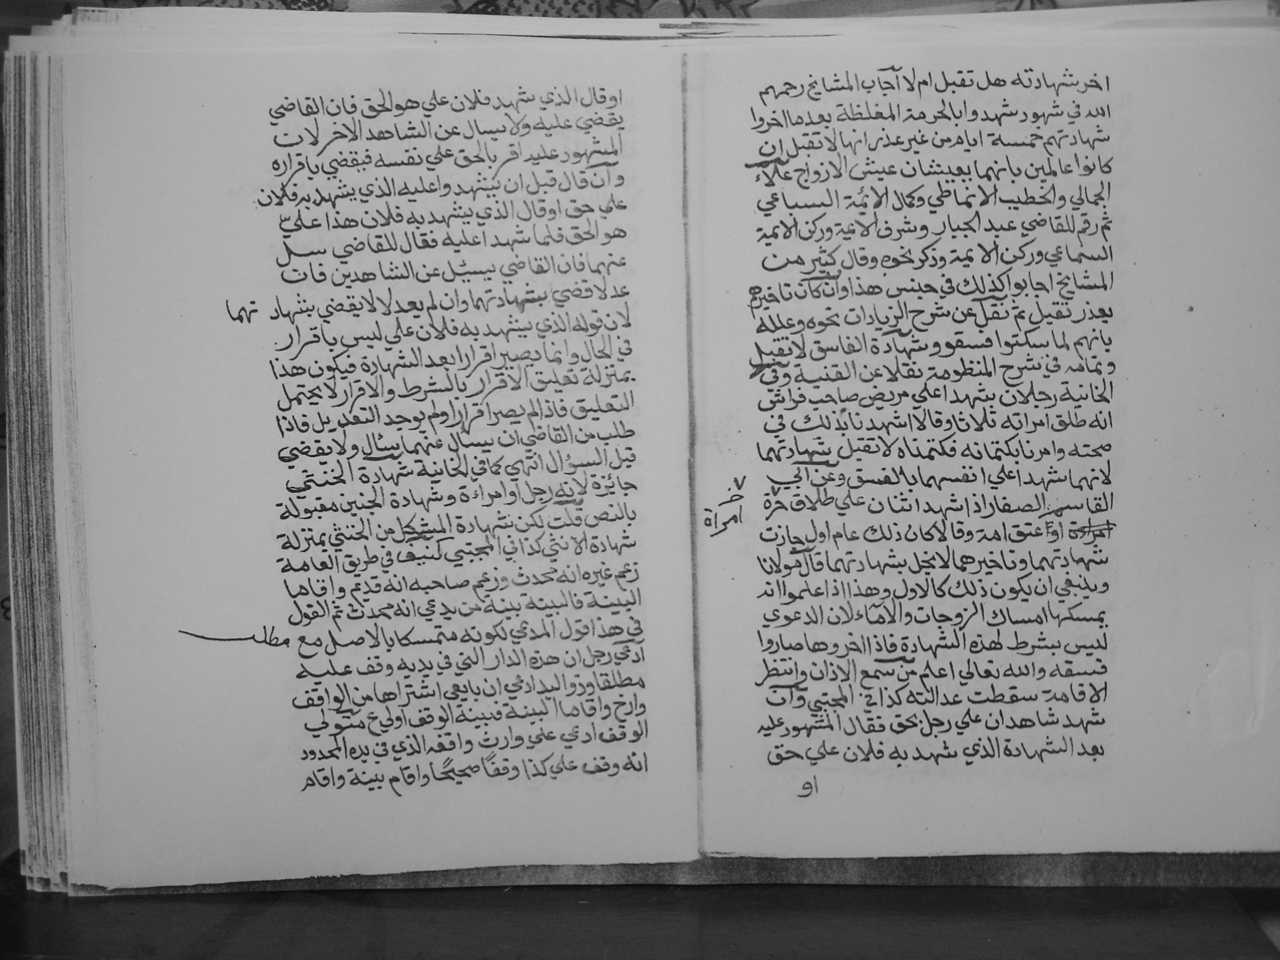 اخر شهادته هل تقبل ام لا آجاب المشايخ رحمهم
الله في شهور شهدوا بالحرمة المغلظة بعد ما اخروا
شهادتهم خمسة ايام من غير عذر انها لا تقبل ان
كانوا عالمين بانهما يعيشان عيش الازواج علاء
الجمالي والخطيب الانماطي وكمال الائمة السباعي
ثم رقم للقاضي عبد الجبار وشرف الائمة وركن الائمة
السماعي وركن الائمة وذكر نحوه وقال كثير من
المشايخ اجابوا كذلك في جنس هذا وان كان تاخيرهم
بعذر تقبل ثم نقل عن شرح الزيادات نحوه وعلله
بانهم لما سكتوا فسقوا وشهادة الفاسق لا تقبل
وتمامه في شرح المنظومة نقلا عن القنية وفي
الخانية رجلان شهدا علي مريض صاحب فراش
انه طلق امراته ثلاثا وقالا اشهدنا بذلك في
صحته وامرنا بكتمانه فكتمناه لا تقبل شهادتهما
لانهما شهدا علي انفسهما بالفسق وعن ابي
القاسم الصفار اذا شهد اثنان علي طلاق حرة
امراة
او عتق امة وقالا كان ذلك عام اول جازت
شهادتهما وتاخيرهما لا يخل بشهادتهما قال مولانا
وينبغي ان يكون ذلك كالاول وهذا اذا علموا انه
يمسكها امساك الزوجات والاماء لان الدعوي
ليس بشرط لهذه الشهادة فاذا اخروها صاروا
فسقه والله تعالي اعلم من سمع الاذان وانتظر
الاقامة سقطت عدالته كذا في المجتبي وان
شهد شاهدان علي رجل بحق فقال المشهود عليه
بعد الشهادة الذي شهد به فلان علي حق
او
او قال الذي شهد فلان علي هو الحق فان القاضي
يقضي عليه ولا يسال عن الشاهد الاخر لان
المشهور عليه اقر بالحق علي نفسه فيقضي باقراره
وان قال قبل ان يشهدوا عليه الذي يشهد به فلان
علي حق او قال الذي يشهد به فلان هذا علي
هو الحق فلما شهدا عليه فقال للقاضي سل
عنهما فان القاضي يسئل عن الشاهدين فان
عدلا قضي بشهادتهما وان لم يعدلا لا يقضي بشهادتهما
لان قوله الذي يشهد به فلان علي ليس باقرار
في الحال وانما يصير اقرارا بعد الشهادة فيكون هذا
بمنزلة تعليق الاقرار بالشرط والاقرار لا يحتمل
التعليق فاذا لم يصر اقرارا ولم يوجد التعديل فاذا
طلب من القاضي ان يسال عنهما سال ولا يقضي
قبل السؤال انتهي كما في الخانية شهادة الخنثي
جائزة لانه رجل او امراة وشهادة الجنين مقبولة
بالنص قلت لكن شهادة المشكل من الخنثي بمنزلة
شهادة الانثي كذا في المجتبي كنيف في طريق العامة
زعم غيره انه محدث وزعم صاحبه انه قديم واقاما
البينة فالبينة بينة من يدعي انه محدث ثم القول
في هذا قول المدعي لكونه متمسكا بالاصل مع مطلب
ادعي رجل ان هذه الدار التي في يديه وقف عليه
مطلقا وذو اليد ادعي ان بايعي اشتراها من الواقف
وارخ واقاما البينة فبينة الوقف اولي ع متولي
الوقف ادعي علي وارث واقفه الذي في يده المحدود
انه وقف علي كذا وقفا صحيحا واقام بينة واقام